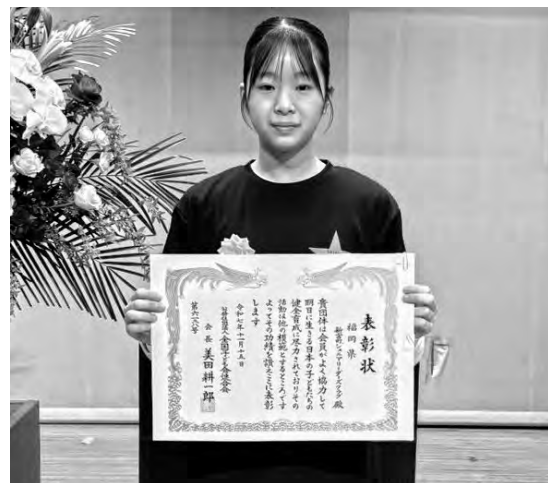 表彰状
福岡県
新宮町ジュニアリーダーズクラブ殿
貴団体は会員がよく協力して
明日に生きる日本の子どもたちの
健全育成に尽力されておりその
活動は他の模範とするところです
よってその功績を讃えここに表彰
します
令和七年十一月十五日
公益社団法人全国子ども会連合会
会長 美田耕一郎
第六一八号